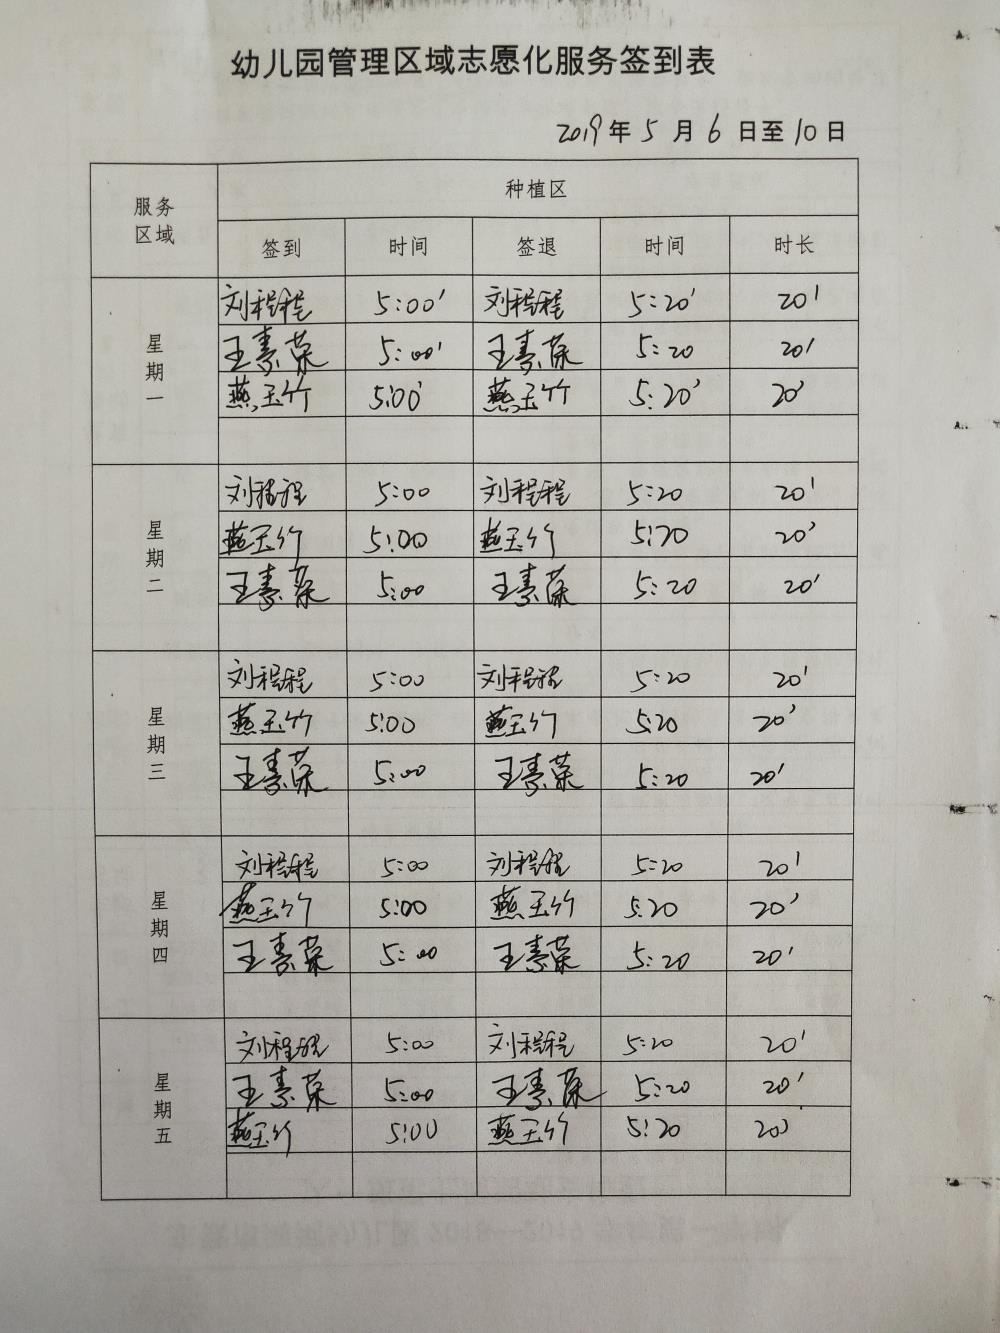 幼儿园管理区域志愿化服务签到表
2019年5月6日至10日
服务区域 种植区
签到 时间 签退 时间 时长
星期一
刘程程 5:00' 刘程程 5:20' 20'
王素荣 5:00' 王素荣 5:20 20'
燕玉竹 5:00' 燕玉竹 5:20' 20'
星期二
刘程程 5:00 刘程程 5:20 20'
燕玉竹 5:00 燕玉竹 5:20 20'
王素荣 5:00 王素荣 5:20 20'
星期三
刘程程 5:00 刘程程 5:20 20'
燕玉竹 5:00 燕玉竹 5:20 20'
王素荣 5:00 王素荣 5:20 20'
星期四
刘程程 5:00 刘程程 5:20 20'
燕玉竹 5:00 燕玉竹 5:20 20'
王素荣 5:00 王素荣 5:20 20'
星期五
刘程程 5:00 刘程程 5:20 20'
王素荣 5:00 王素荣 5:20 20'
燕玉竹 5:00 燕玉竹 5:20 20'